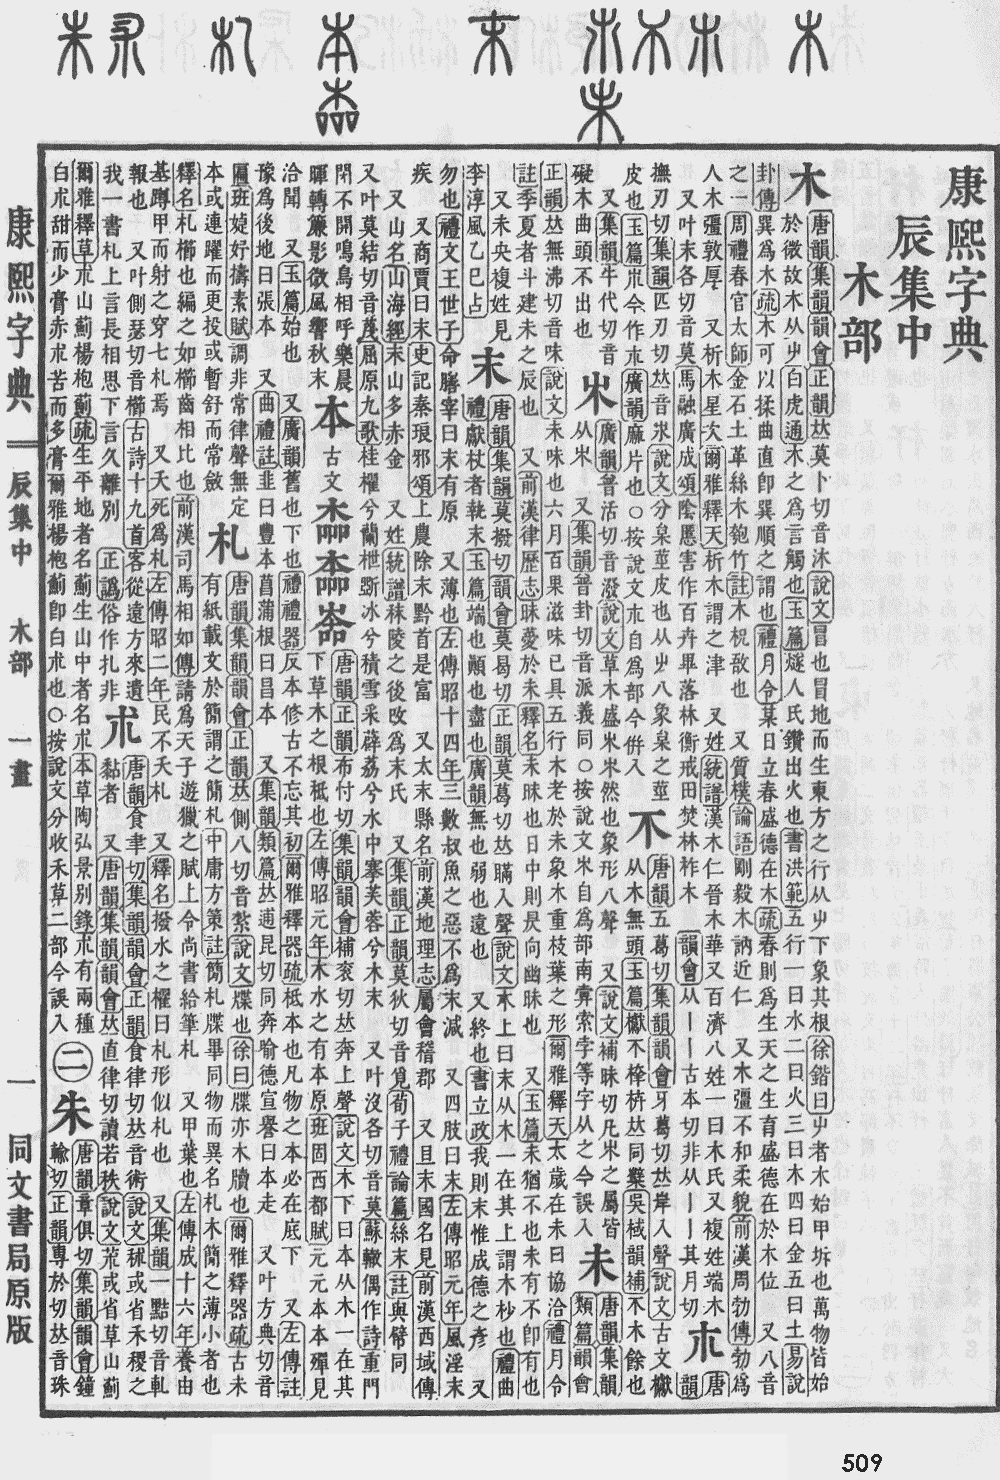 康熙字典
辰集中
木部
木 唐韻集韻韻會正韻𠀤莫卜切音沐說文冒也冒地而生東方之行从屮下象其根徐鍇曰屮者木始甲坼也萬物皆始
於微故木从屮白虎通木之爲言觸也玉篇燧人氏鑽出火也書洪範五行一曰水二曰火三曰木四曰金五曰土易說
卦傳巽爲木疏木可以揉曲直卽巽順之謂也禮月令某日立春盛德在木疏春則爲生天之生育盛德在於木位 又八音
之一周禮春官太師金石土革絲木匏竹註木柷敔也 又質樸論語剛毅木訥近仁 又木彊不和柔貌前漢周勃傳勃爲
人木彊敦厚 又析木星次爾雅釋天析木謂之津 又姓統譜漢木仁晉木華又百濟八姓一曰木氏又複姓端木
又叶末各切音莫馬融廣成頌陰慝害作百卉畢落林衡戒田焚林柞木 韻會从丨丨古本切非从亅亅其月切
朩 唐韻
撫刃切集韻匹刃切𠀤音 說文分枲莖皮也从屮八象枲之莖
皮也玉篇朩今作𣎳廣韻麻片也○按說文𣎳自爲部今倂入
不 唐韻五葛切集韻韻會牙葛切𠀤岸入聲說文古文櫱
从木無頭玉篇櫱不 枿𠀤同 吳棫韻補不木餘也
又集韻牛代切音
礙木曲頭不出也
𣎵 廣韻普活切音潑說文草木盛𣎵𣎵然也象形八聲 又說文補昧切凡𣎵之屬皆
从𣎵 又集韻普卦切音派義同○按說文𣎵自爲部南 索字等字从之今誤入
未 唐韻集韻
類篇韻會
正韻𠀤無沸切音味說文未味也六月百果滋味已具五行木老於未象木重枝葉之形爾雅釋天太歲在未曰協洽禮月令
註季夏者斗建未之辰也 又前漢律歷志昧薆於未釋名未昧也日中則昃向幽昧也 又玉篇未猶不也未有不卽有也
又未央複姓見
李淳風乙巳占
末 唐韻集韻莫撥切韻會莫曷切正韻莫葛切𠀤瞞入聲說文木上曰末从木一在其上謂木杪也禮曲
禮獻杖者執末玉篇端也顚也盡也廣韻無也弱也遠也 又終也書立政我則末惟成德之彥 又
勿也禮文王世子命膳宰曰末有原 又薄也左傳昭十四年三數叔魚之惡不爲末減 又四肢曰末左傳昭元年風淫末
疾 又商賈曰末史記秦琅邪頌上農除末黔首是富 又太末縣名前漢地理志屬會稽郡 又且末國名見前漢西域傳
又山名山海經末山多赤金 又姓統譜秣陵之後攺爲末氏 又集韻正韻莫狄切音覓荀子禮論篇絲末註與幦同
又叶莫結切音蔑屈原九歌桂櫂兮蘭枻斲冰兮積雪采薜荔兮水中搴芙蓉兮木末 又叶沒各切音莫蘇轍偶作詩重門
閉不開鳴鳥相呼樂晨
暉轉簾影微風響秋末
本 古文
唐韻正韻布忖切集韻韻會補袞切𠀤奔上聲說文木下曰本从木一在其
下草木之根柢也左傳昭元年木水之有本原班固西都賦元元本本殫見
洽聞 又玉篇始也 又廣韻舊也下也禮禮器反本修古不忘其初爾雅釋器疏柢本也凡物之本必在底下 又左傳註
豫爲後地曰張本 又曲禮註韭曰豐本菖蒲根曰昌本 又集韻類篇𠀤逋昆切同奔喻德宣譽曰本走 又叶方典切音
匾班婕妤擣素賦調非常律聲無定
本或連躍而更投或暫舒而常斂
札 唐韻集韻韻會正韻𠀤側八切音紮說文牒也徐曰牒亦木牘也爾雅釋器疏古未
有紙載文於簡謂之簡札中庸方策註簡札牒畢同物而異名札木簡之薄小者也
釋名札櫛也編之如櫛齒相比也前漢司馬相如傳請爲天子遊獵之賦上令尚書給筆札 又甲葉也左傳成十六年養由
基蹲甲而射之穿七札焉 又夭死爲札左傳昭二年民不夭札 又釋名撥水之櫂曰札形似札也 又集韻一黠切音軋
報也 又叶側瑟切音櫛古詩十九首客從遠方來遺
我一書札上言長相思下言久離別 正譌俗作扎非
朮 唐韻食聿切集韻韻會正韻食律切𠀤音術說文秫或省禾稷之
黏者 又唐韻集韻韻會𠀤直律切讀若秩說文荒或省草山薊
爾雅釋草朮山薊楊枹薊疏生平地者名薊生山中者名朮本草陶弘景别錄朮有兩種
白朮甜而少膏赤朮苦而多膏爾雅楊枹薊卽白朮也○按說文分收禾草二部今誤入
二 朱 唐韻章俱切集韻韻會鐘
輸切正韻專於切𠀤音珠
康熙字典 辰集中 木部 一畫 一 同文書局原版
509